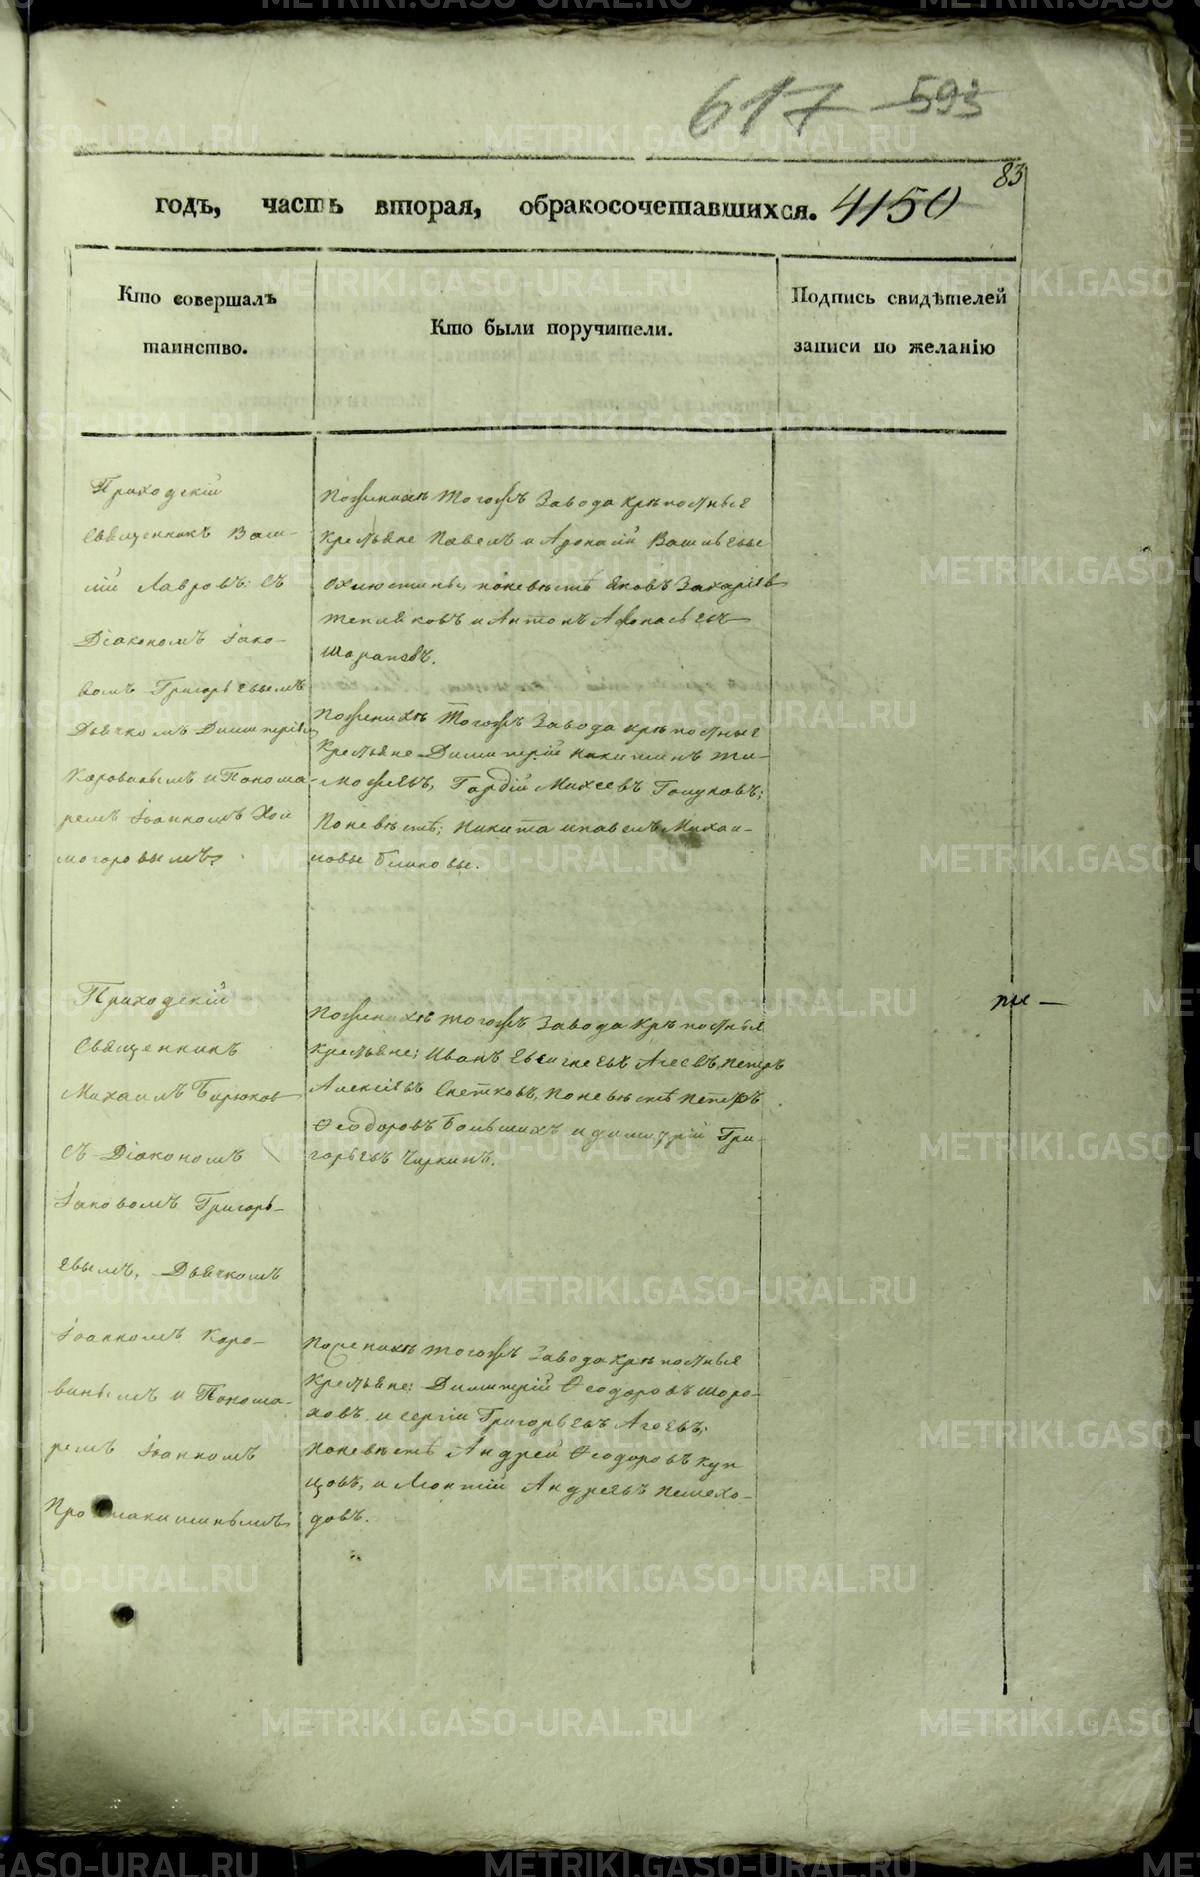 617 593
83
годъ, часть вторая, обракосочетавшихся. 4150
Кто совершалъ
таинство.
Кто были поручители.
Подпись свидѣтелей
записи по желанію
Приходскій
Священникъ Васи-
лій Лавровъ: съ
Діакономъ Іако-
вомъ Григорьевымъ
Дьячкомъ Димитріемъ
Коровинымъ и Понома-
ремъ Іоанномъ Хол
могоровымъ
Поженихѣ тогожъ Завода крѣпостные
Крестьяне Павелъ и Афонасій Васильевы
Охлюстины, поневѣстѣ Яковъ Захаріевъ
Тепляковъ и Антонъ Афонасьевъ
Шараповъ.
Поженихѣ Тогожъ Завода крѣпостные
Крестьяне Димитрій Никитинъ Ти-
мофѣевъ, Гордій Михеевъ Голуковъ;
Поневѣстѣ; Никита ипавелъ Михаи-
ловы Блиновы.
Приходскій
Священникъ
Михаилъ Бирюковъ
съ Діакономъ
Іаковомъ Григорь-
евымъ, Дьячкомъ
Іоанномъ Коро-
винымъ и Понома-
ремъ Іоанномъ
Поженихѣ тогожъ Завода Крѣпостныя
Крестьяне; Иванъ Евсигнеевъ Агеевъ, петръ
Алексіевъ Снетковъ, Поневѣстѣ Петръ
Ѳеодоровъ Большихъ и димитрій Гри-
горьевъ Чиркинъ.
Поженихѣ тогожъ Завода крѣпостныя
Крестьяне; Димитрій Ѳеодоровъ Шоро-
ховъ, и сергіи Григорьевъ Агеевъ;
поневѣстѣ Андрей Ѳеодоровъ Куп
цовъ, и Леонтій Андреевъ Пешехо-
довъ.
METRIKI.GASO-URAL.RU